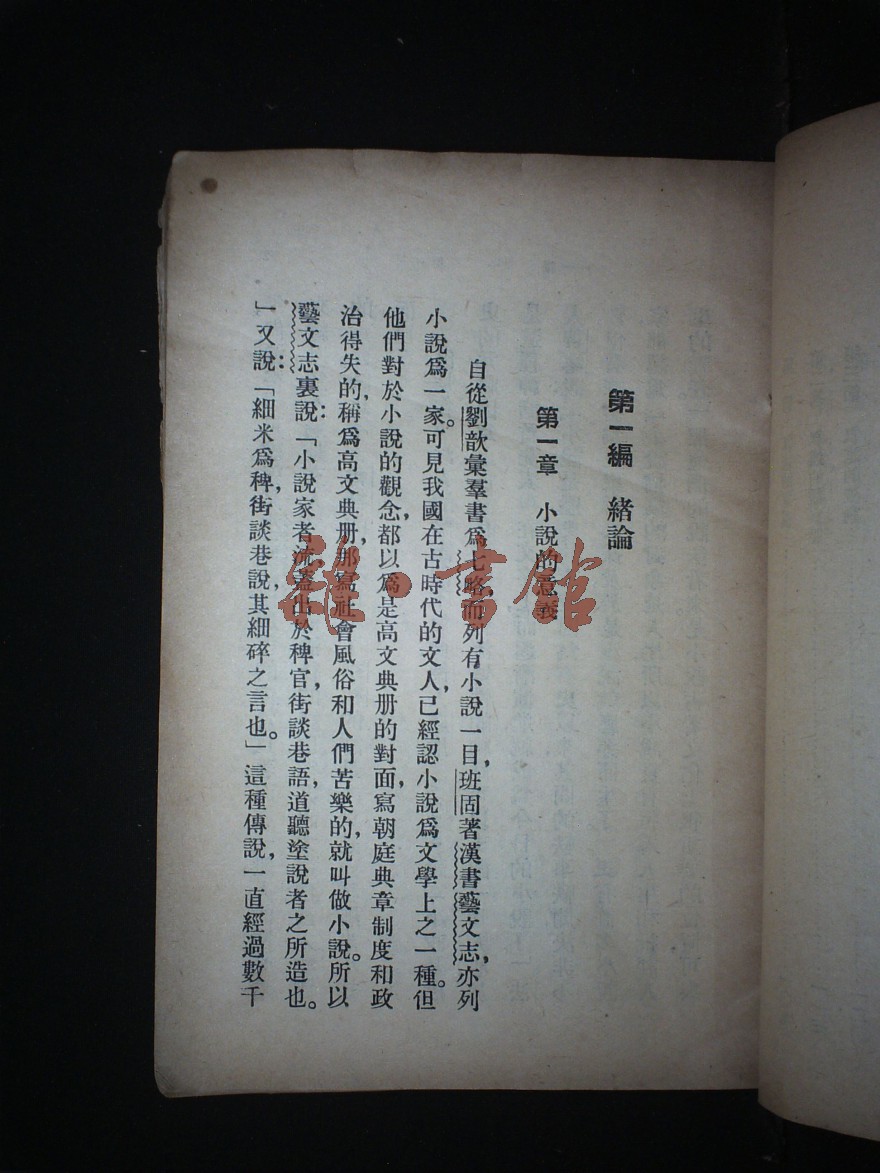 第一編　緒論
第一章　小說的意義
自從劉歆彙羣書爲七略，而列有小說一目，班固著漢書藝文志，亦列
小說爲一家。可見我國在古時代的文人，已經認小說爲文學上之一種。但
他們對於小說的觀念，都以爲是高文典册的對面，寫朝庭典章制度和政
治得失的，稱爲高文典册，那寫社會風俗和人們苦樂的，就叫做小說。所以
藝文志裏說：「小說家者流，蓋出於稗官，街談巷語，道聽塗說者之所造也。
」又說：「細米爲稗，街談巷說，其細碎之言也。」這種傳說，一直經過數千
雜·書館